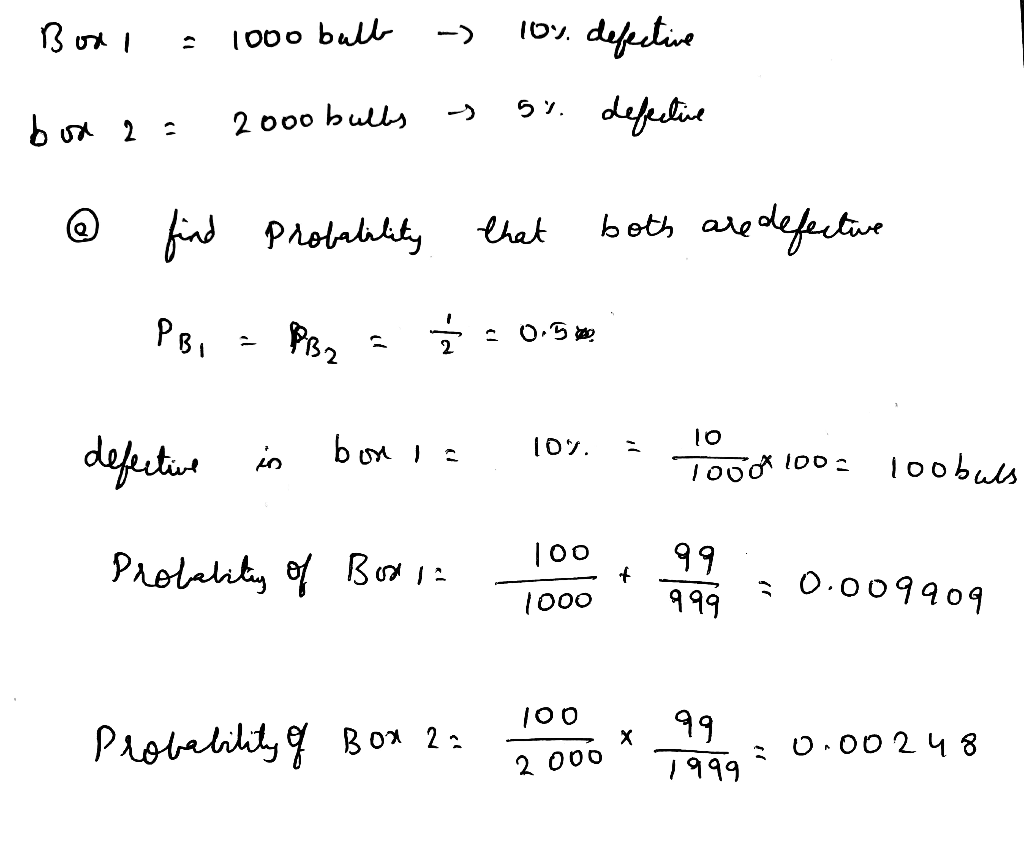 Box 1 = 1000 bulb -> 10% defective
box 2 = 2000 bulbs -> 5% defective
ⓐ find Probability that both are defective
P B₁ = P B₂ = 1/2 = 0.5
defective in box 1 = 10% = 10/1000 × 100 = 100 buls
Probability of Box 1 = 100/1000 + 99/999 = 0.009909
Probability of Box 2 = 100/2000 × 99/1999 = 0.00248